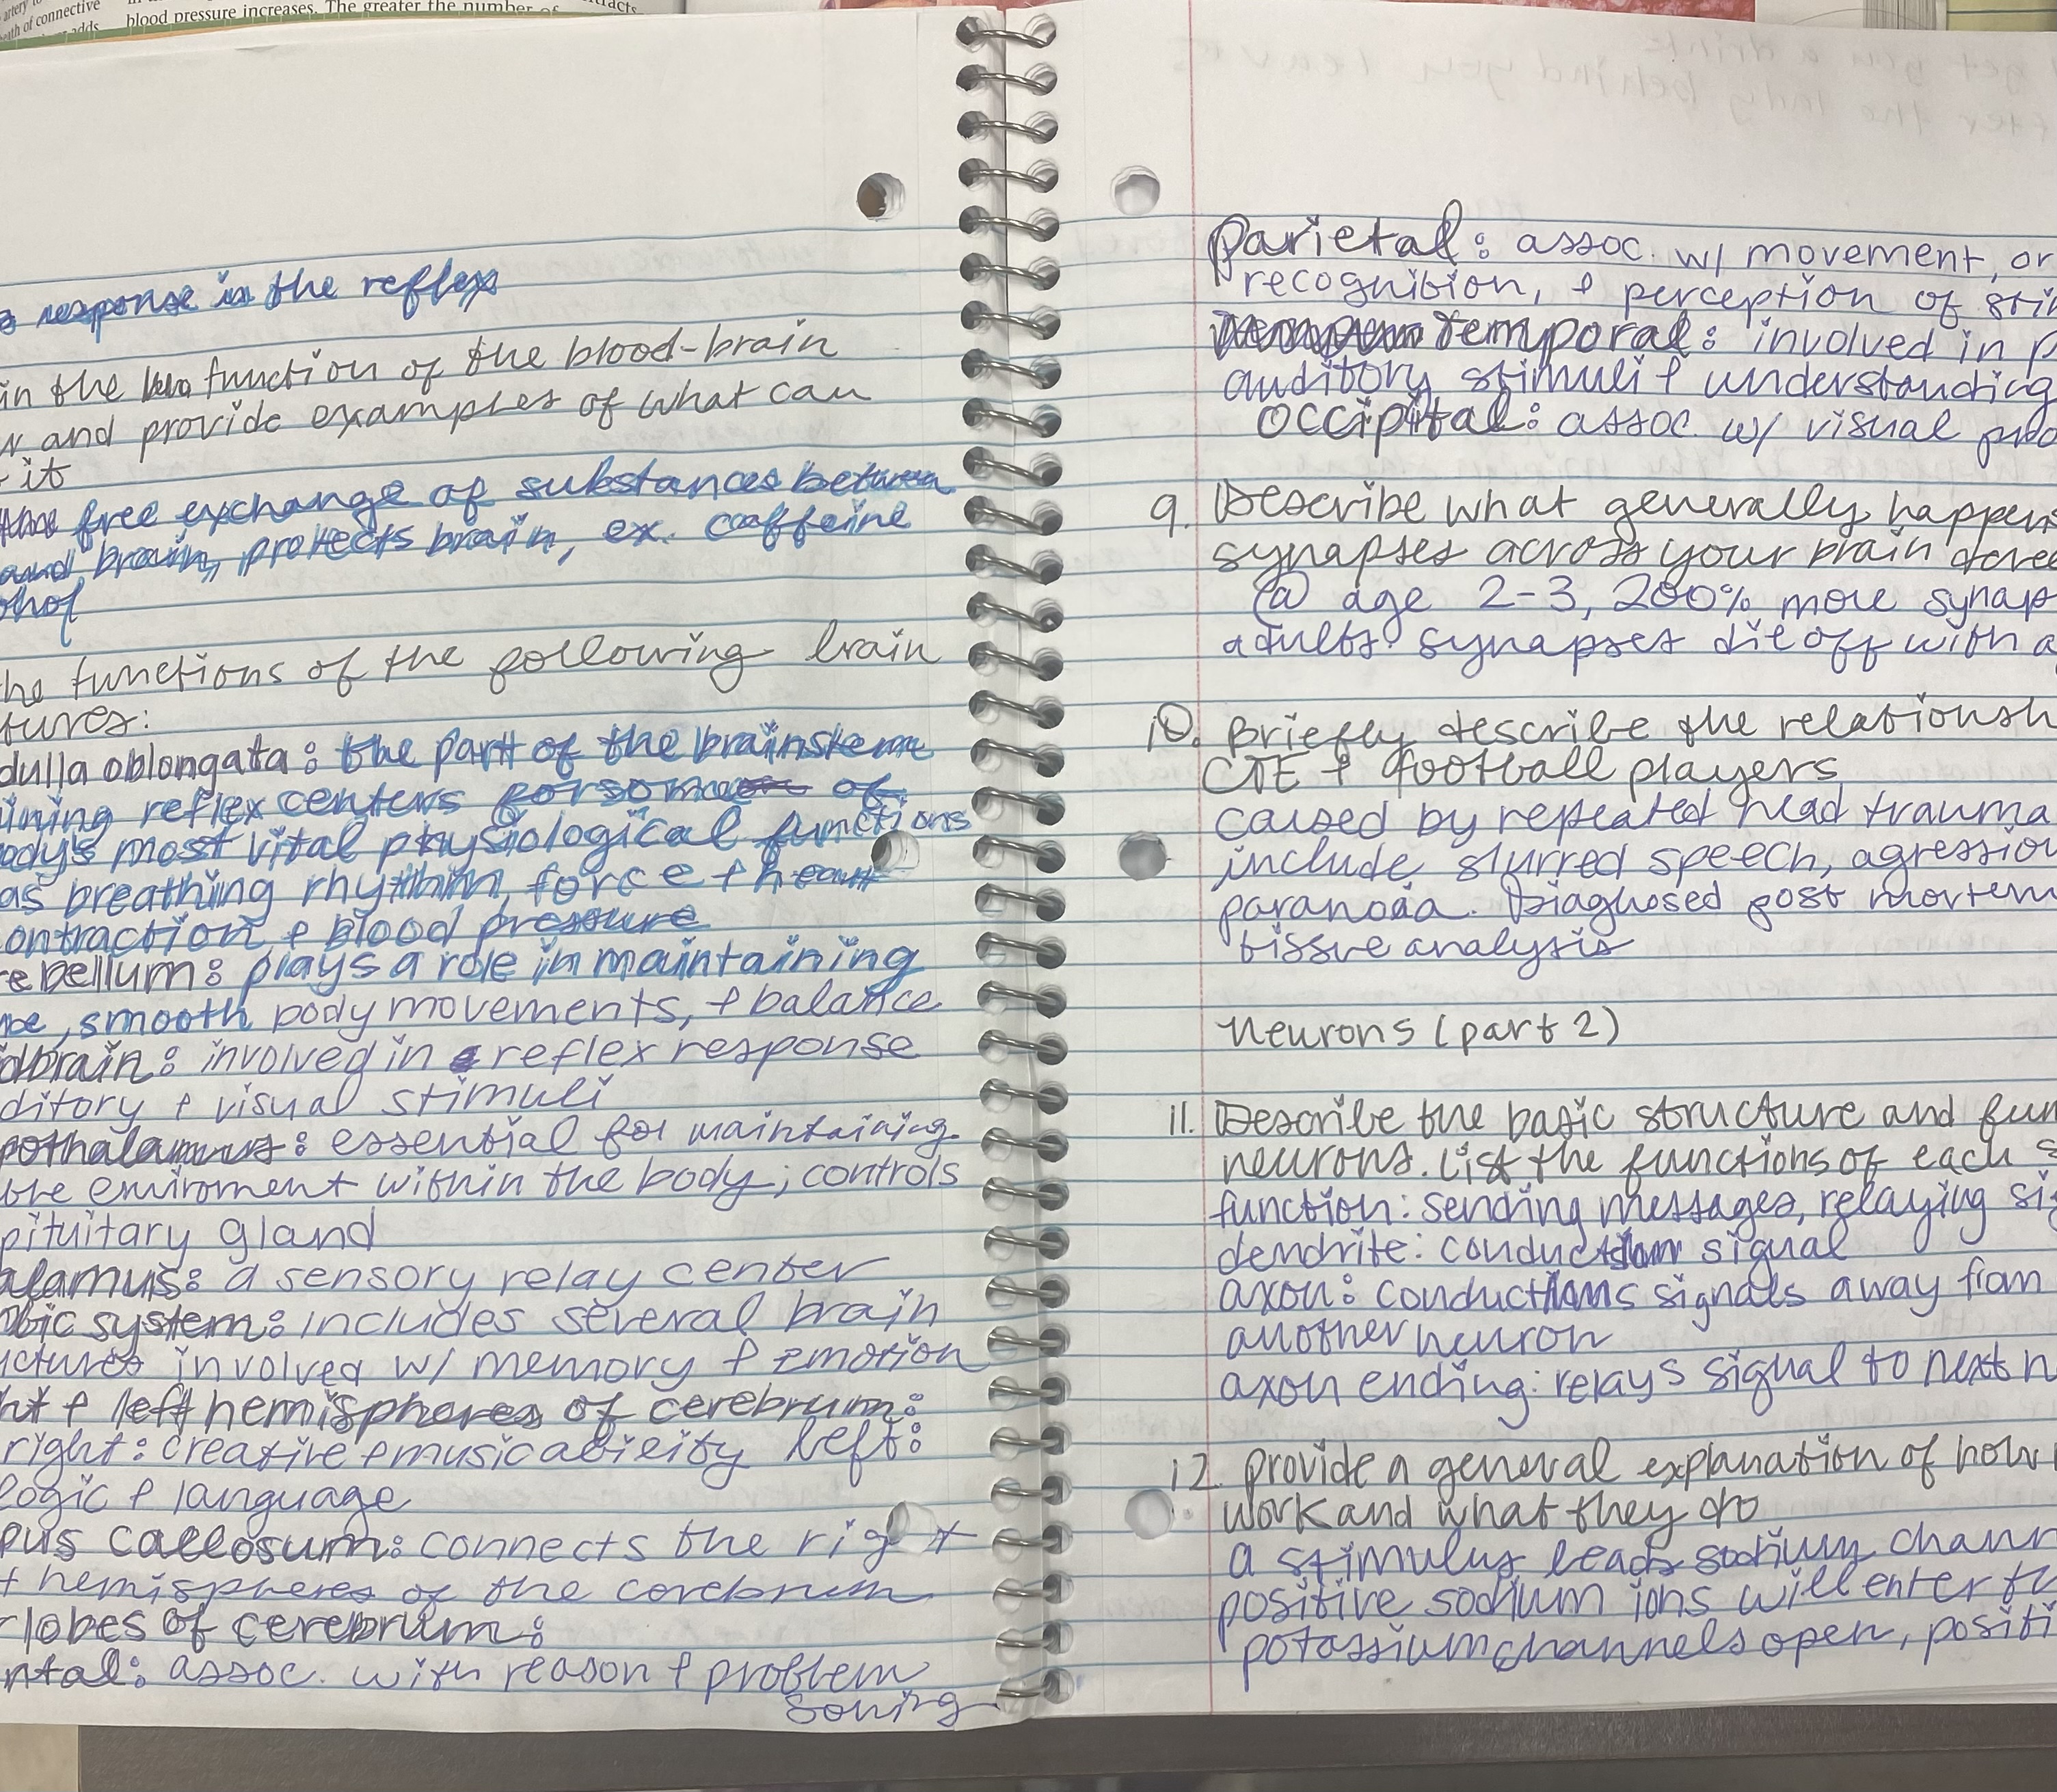 blood pressure increases. The greater the number of
of connective
adds
response is the reflex
in the function of the blood-brain
and provide examples of what can
it
free exchange of substances between
and brain, protects brain, ex. caffeine
ohol
he functions of the following brain
tures:
dulla oblongata: the part of the brainstem
ining reflex centers for some of
ody's most vital physiological functions
as breathing rhythm, force + heart
ontraction + blood pressure
rebellum: plays a role in maintaining
smooth body movements, + balance
dbrain: involved in reflex response
ditory + visual stimuli
pothalamus: essential for maintaining
enviroment within the body; controls
pituitary gland
alamus: a sensory relay center
bic system: includes several brain
uctures involved w/ memory + emotion
ht + left hemispheres of cerebrum:
right: creative + music ability left:
logic + language
pus callosum: connects the right
t hemispheres of the cerebrum
r lobes of cerebrum:
ntal: assoc. with reason + problem
soving
parietal: assoc. w/ movement, or
recognition, + perception of stim
temporal: involved in p
auditory stimuli + understanding
occipital: assoc. w/ visual proc
9. Describe what generally happens
synapses across your brain
@ age 2-3, 200% more synap
adults. synapses die off with a
10. Briefly describe the relationsh
CTE + football players
caused by repeated head trauma
include slurred speech, agression
paranoia. Diagnosed post mortem
tissue analysis
Neurons (part 2)
11. Describe the basic structure and fun
neurons. List the functions of each s
function: sending messages, relaying sig
dendrite: conduct signal
axon: conducts signals away from
another neuron
axon ending: relays signal to next n
12. provide a general explanation of how
work and what they do
a stimulus leads sodium chann
positive sodium ions will enter th
potassium channels open, positi